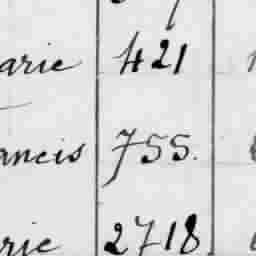 arie 421
ancis 755.
rie 2718